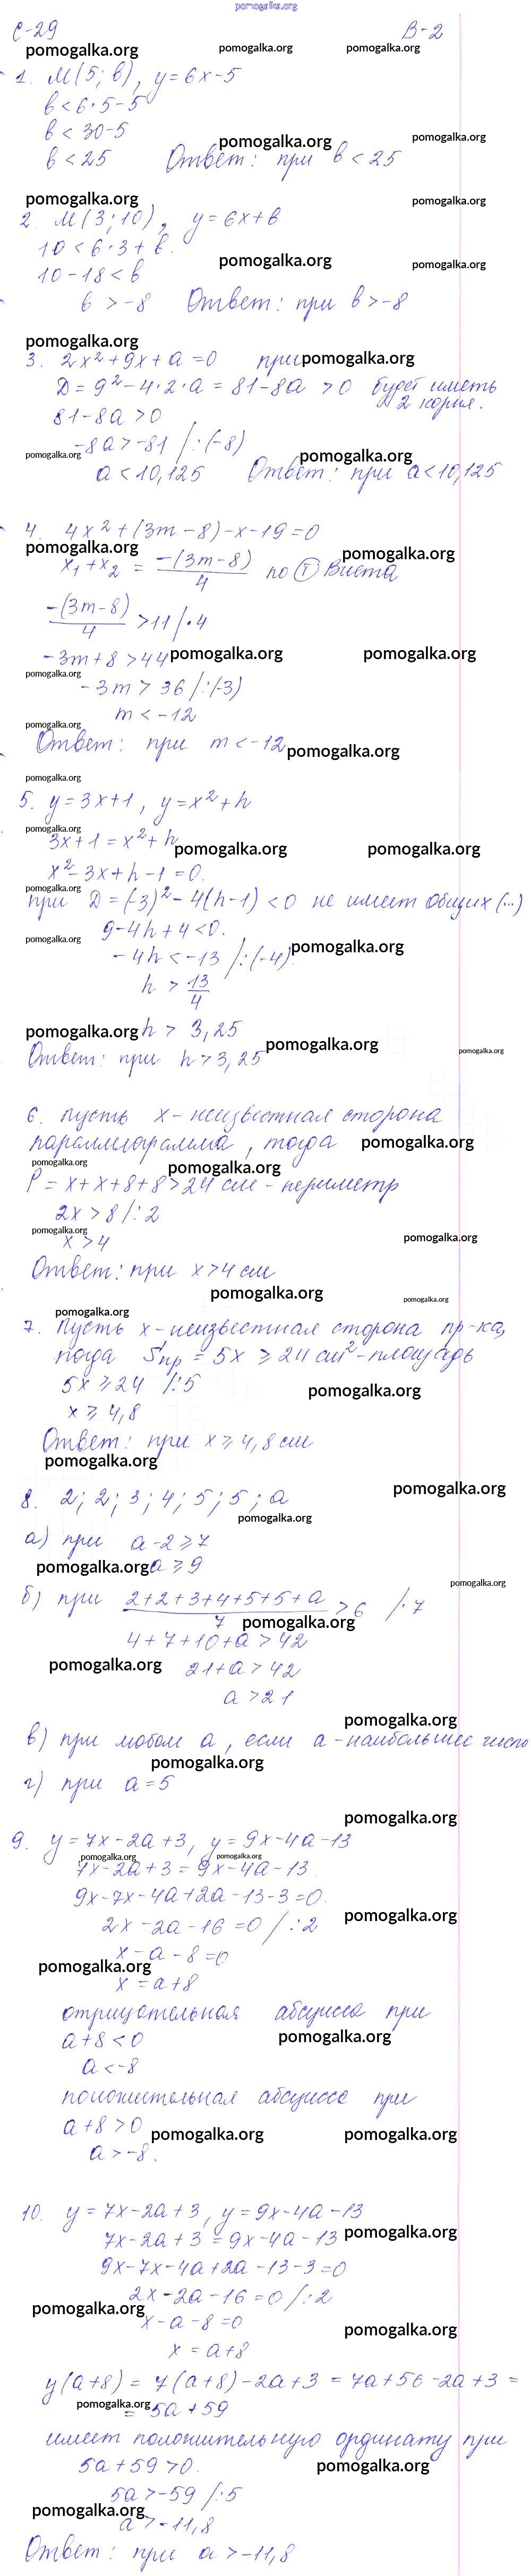 pomogalka.org
С-29 В-2
pomogalka.org pomogalka.org pomogalka.org
1. М(5; b), y=6x-5
b<6·5-5
b<30-5
pomogalka.org pomogalka.org
b<25 Ответ: при b<25
pomogalka.org pomogalka.org
2. М(3; 10), y=6x+b
10<6·3+b.
pomogalka.org pomogalka.org
10-18<b
b>-8 Ответ: при b>-8
pomogalka.org
3. 2x²+9x+a=0 при pomogalka.org
D=9²-4·2·a=81-8a>0 будет иметь
2 корня.
81-8a>0
-8a>-81 /:(-8)
pomogalka.org pomogalka.org
a<10,125 Ответ: при a<10,125
4. 4x²+(3m-8)-x-19=0
pomogalka.org pomogalka.org
x₁+x₂ = -(3m-8)/4 по Т Виета
-(3m-8)/4 >11 /·4
-3m+8>44 pomogalka.org pomogalka.org
pomogalka.org
-3m>36 /:(-3)
m<-12
pomogalka.org
Ответ: при m<-12 pomogalka.org
pomogalka.org
5. y=3x+1, y=x²+h
pomogalka.org
3x+1=x²+h
pomogalka.org pomogalka.org
x²-3x+h-1=0.
pomogalka.org
при D=(-3)²-4(h-1)<0 не имеет общих (...)
9-4h+4<0.
pomogalka.org pomogalka.org
-4h<-13 /:(-4)
h > 13/4
pomogalka.org h > 3,25
pomogalka.org pomogalka.org
Ответ: при h>3,25
6. Пусть x-неизвестная сторона
параллелограмма, тогда pomogalka.org
pomogalka.org pomogalka.org
P=x+x+8+8>24 см - периметр
2x>8 /:2
pomogalka.org pomogalka.org
x>4
Ответ: при x>4 см
pomogalka.org pomogalka.org
pomogalka.org
7. Пусть x-неизвестная сторона пр-ка,
тогда Sпр=5x⩾24 см²-площадь
5x⩾24 /:5 pomogalka.org
x⩾4,8
Ответ: при x⩾4,8 см
pomogalka.org
pomogalka.org
8. 2; 2; 3; 4; 5; 5; a
pomogalka.org
а) при a-2⩾7
pomogalka.org a⩾9
pomogalka.org
б) при 2+2+3+4+5+5+a/7 >6 /·7
pomogalka.org
4+7+10+a>42
pomogalka.org 21+a>42
a>21
pomogalka.org
в) при любом a, если a-наибольшее число
pomogalka.org
г) при a=5
pomogalka.org
9. y=7x-2a+3, y=9x-4a-13
pomogalka.org pomogalka.org
7x-2a+3=9x-4a-13.
9x-7x-4a+2a-13-3=0.
pomogalka.org
2x-2a-16=0 /:2
x-a-8=0
pomogalka.org
x=a+8
отрицательная абсцисса при
a+8<0 pomogalka.org
a<-8
положительная абсцисса при
a+8>0
pomogalka.org pomogalka.org
a>-8.
10. y=7x-2a+3, y=9x-4a-13
7x-2a+3=9x-4a-13 pomogalka.org
9x-7x-4a+2a-13-3=0
2x-2a-16=0 /:2
pomogalka.org
x-a-8=0 pomogalka.org
x=a+8
y(a+8)=7(a+8)-2a+3=7a+56-2a+3=
pomogalka.org
=5a+59
имеет положительную ординату при
5a+59>0. pomogalka.org
5a>-59 /:5
pomogalka.org
a>-11,8
Ответ: при a>-11,8